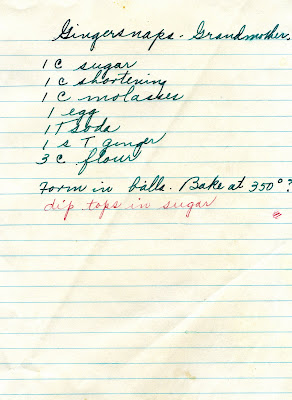 Gingersnaps - Grandmother.
1 C sugar
1 C shortening
1 C molasses
1 egg
1 T soda
1 s T ginger
3 C flour
Form in balls. Bake at 350°?
dip tops in sugar